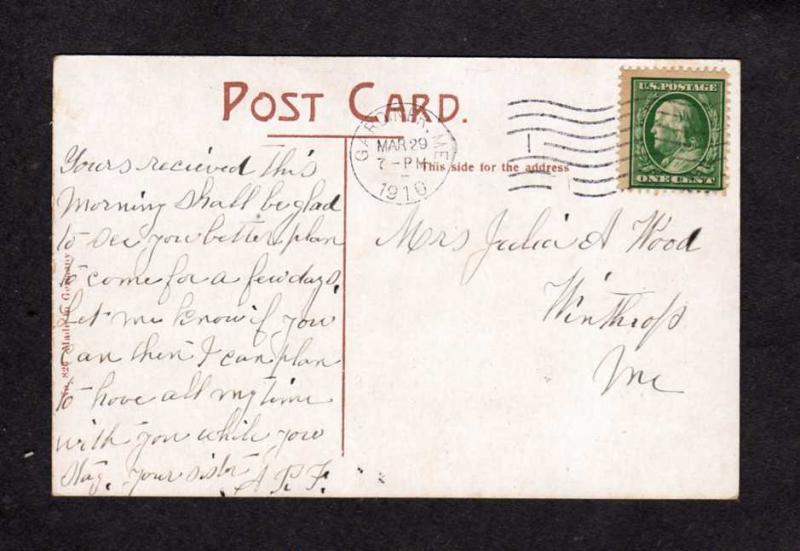 POST CARD.
GARDINER, ME.
MAR 29
7-PM
1910
U.S. POSTAGE
ONE CENT
This side for the address
Yours recieved this
Morning shall be glad
to see you better plan
to come for a few days,
Let me know if you
can then I can plan
to have all my time
with you while you
stay. your sister A R F.
Mrs Julia A Wood
Winthrop
Me
Made in Germany